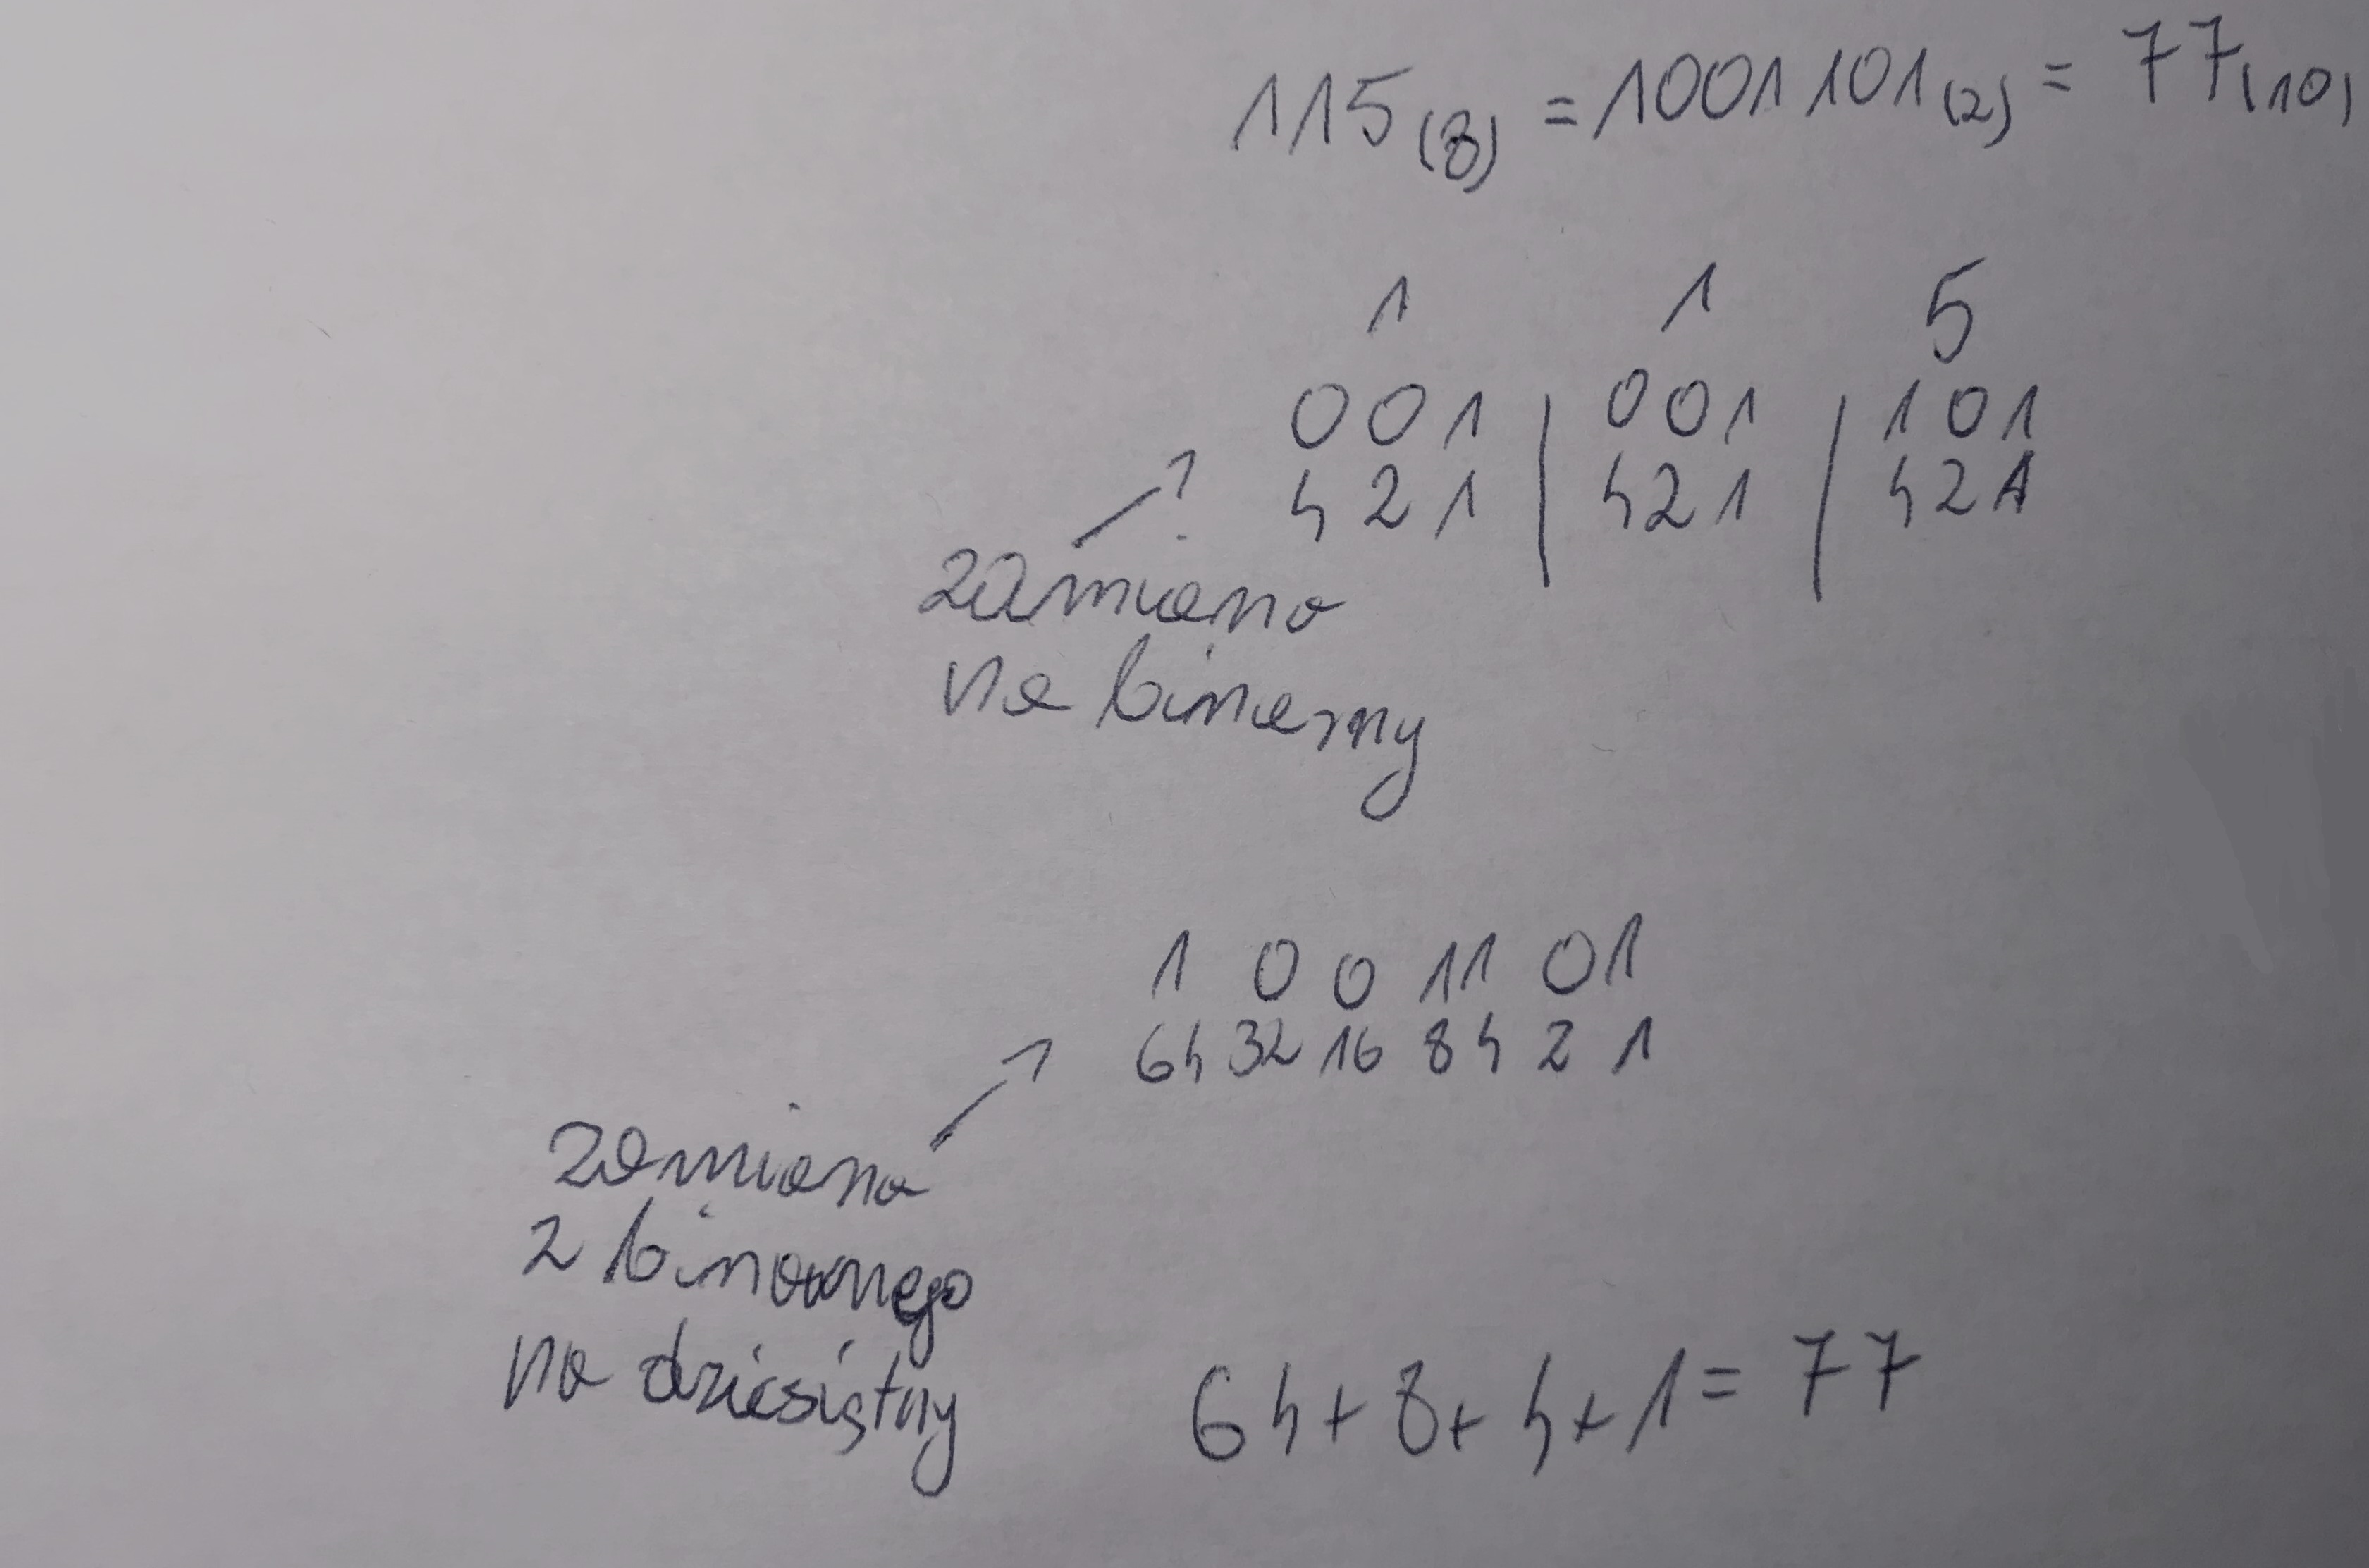 115(8) = 1001101(2) = 77(10)
1 1 5
001 | 001 | 101
421 | 421 | 421
zamiana
na binarny
1 0 0 1 1 0 1
64 32 16 8 4 2 1
zamiana
z binarnego
na dziesiętny
64 + 8 + 4 + 1 = 77